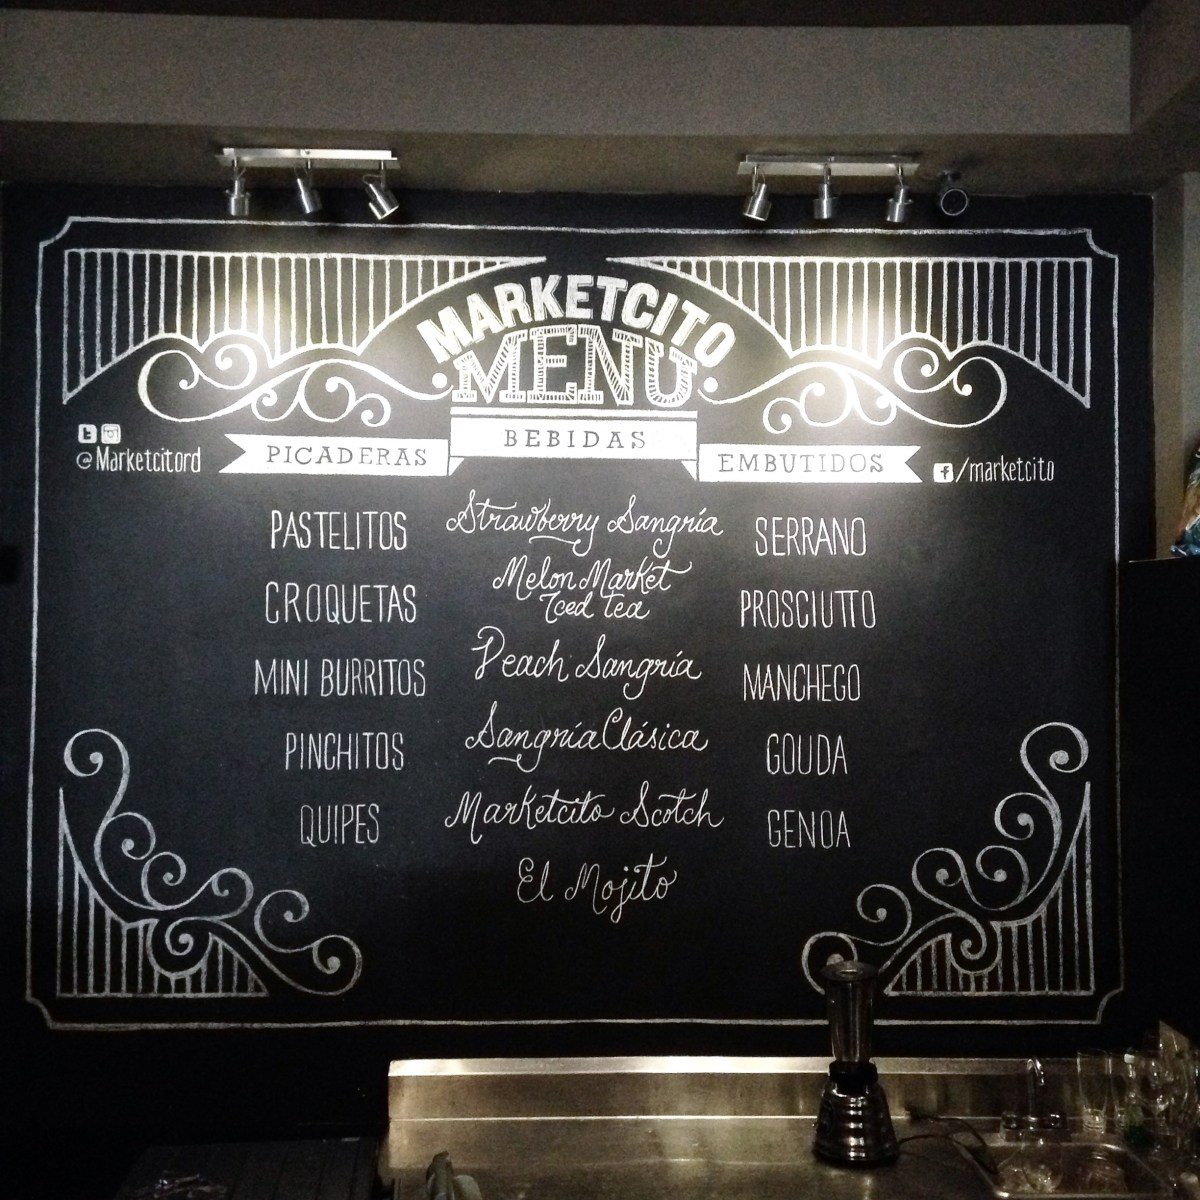 MARKETCITO
MENU
@Marketcitord
PICADERAS
BEBIDAS
EMBUTIDOS
f/marketcito
PASTELITOS
CROQUETAS
MINI BURRITOS
PINCHITOS
QUIPES
Strawberry Sangría
Melon Market
Iced tea
Peach Sangría
Sangría Clásica
Marketcito Scotch
El Mojito
SERRANO
PROSCIUTTO
MANCHEGO
GOUDA
GENOA